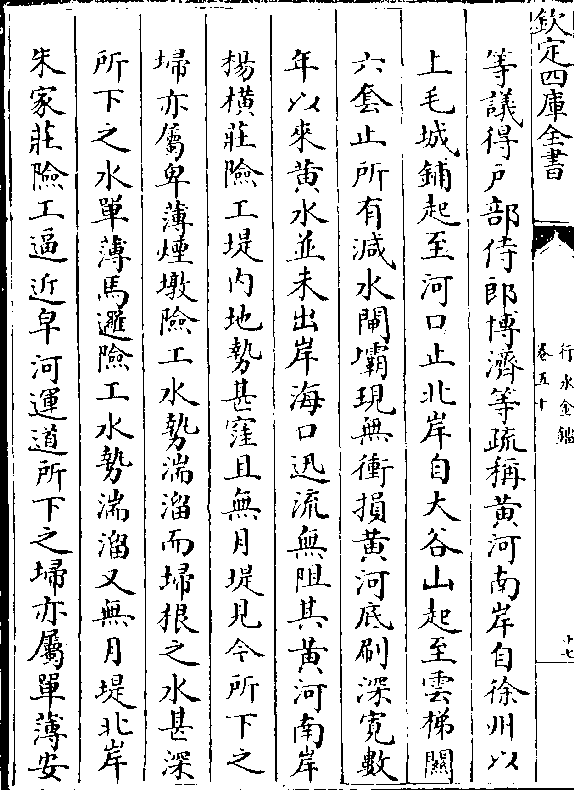 欽定四庫全書
行水金鑑
卷五十
十七
等議得戶部侍郎博濟等疏稱黃河南岸自徐州以
上毛城鋪起至河口止北岸自大谷山起至雲梯關
六套止所有減水閘壩現無衝損黃河底刷深寛數
年以來黃水並未出岸海口迅流無阻其黃河南岸
楊橫莊險工堤内地勢甚窪且無月堤見今所下之
埽亦屬卑薄煙墩險工水勢湍溜而埽狠之水甚深
所下之水單薄馬邏險工水勢湍溜又無月堤北岸
朱家莊險工逼近皁河運道所下之埽亦屬單薄安